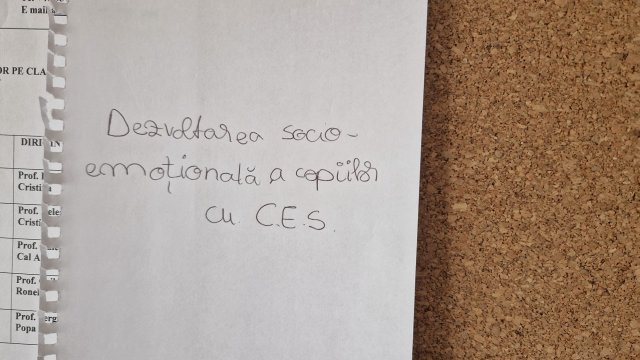 E mail
OR PE CLA
DIRI
Prof.
Cristi
Prof.
Cristi
Prof.
Cal A
Prof.
Ronei
Prof.
Popa
Dezvoltarea socio-
emoțională a copiilor
cu C.E.S.